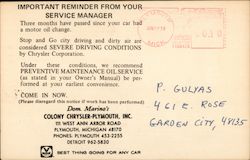 IMPORTANT REMINDER FROM YOUR
SERVICE MANAGER
Three months have passed since your car had
a motor oil change.
Stop and Go city driving and dirty air are
considered SEVERE DRIVING CONDITIONS
by Chrysler Corporation.
Under these conditions, we recommend
PREVENTIVE MAINTENANCE OIL SERVICE
(as stated in your Owner's Manual) be per-
formed at your earliest convenience.
COME IN NOW.
(Please disregard this notice if work has been performed)
Dom. Marino's
COLONY CHRYSLER-PLYMOUTH, INC.
111 WEST ANN ARBOR ROAD
PLYMOUTH, MICHIGAN 48170
PHONES: PLYMOUTH 453-2255
DETROIT 962-5830
BEST THING GOING FOR ANY CAR
P. GULYAS
461 E. ROSE
GARDEN CITY, 48135